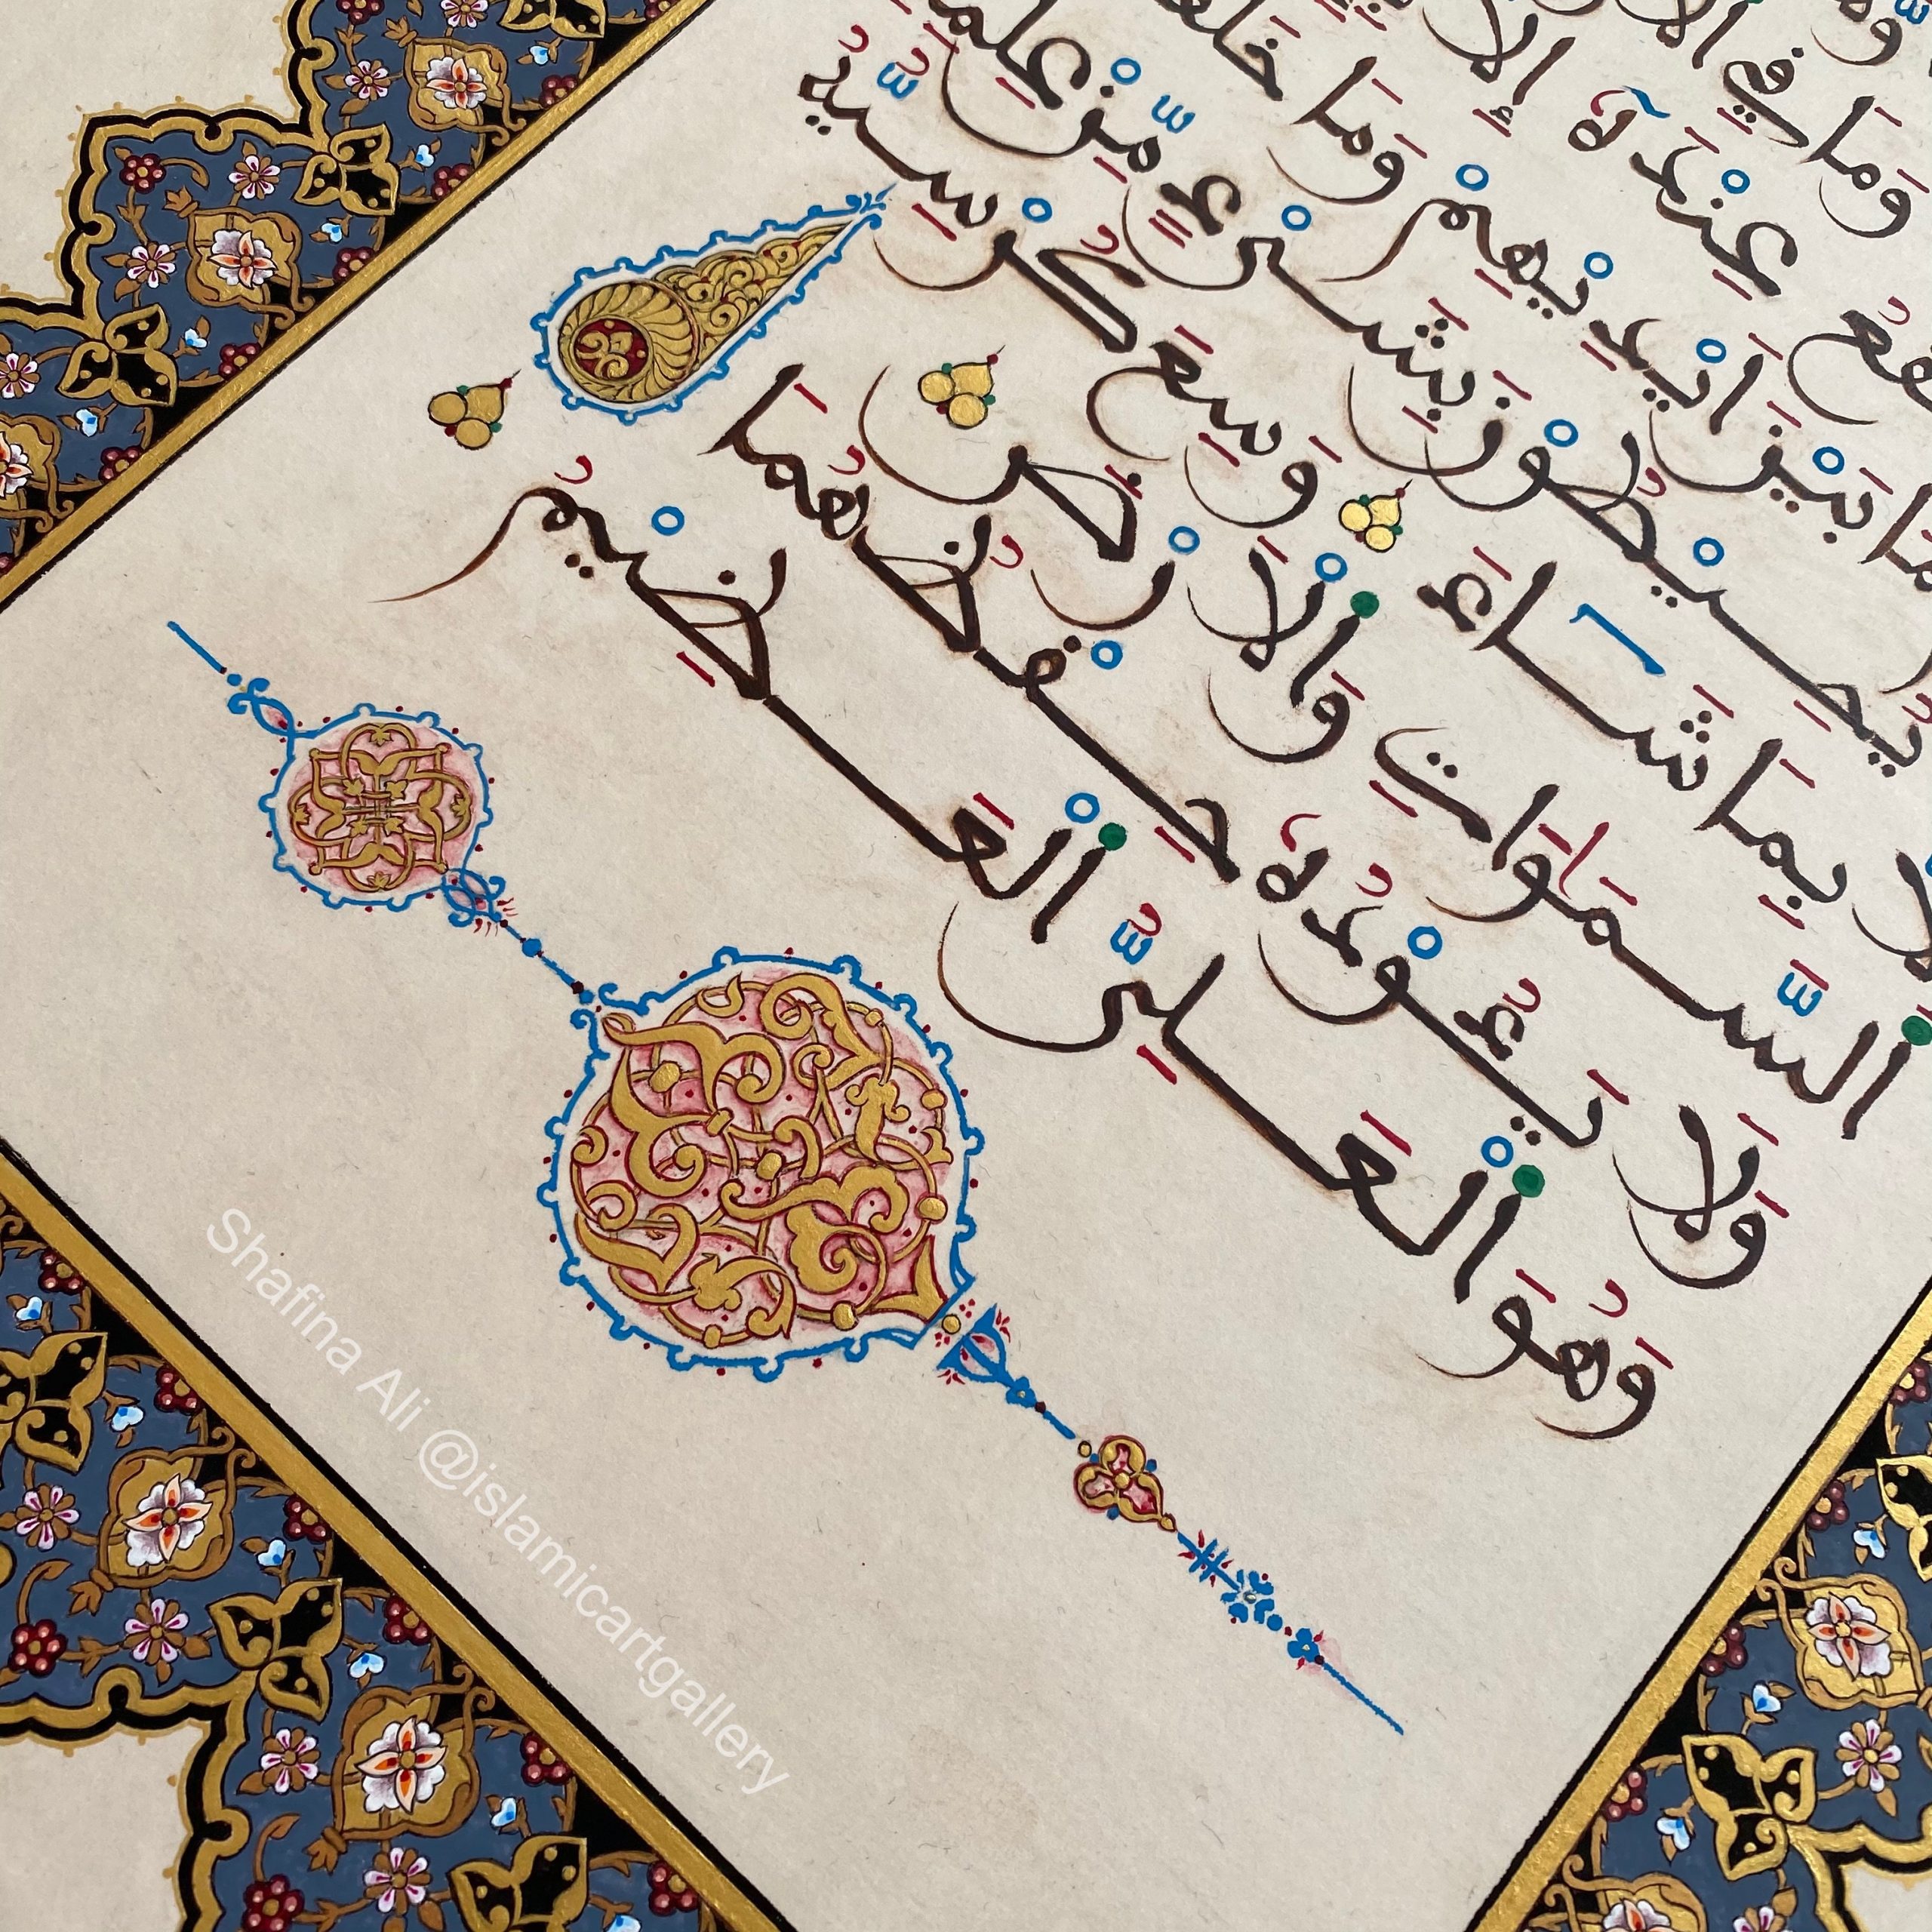 وَمَا فِي
عِنْدَهُ إِلَّا
مَا بَيْنَ أَيْدِيهِمْ وَمَا
يُحِيطُونَ بِشَيْءٍ مِّنْ عِلْمِهِ
إِلَّا بِمَا شَاءَ وَسِعَ كُرْسِيُّهُ
اَلسَّمَاوَاتِ وَالْأَرْضَ
وَلَا يَئُودُهُ حِفْظُهُمَا
وَهُوَ اَلْعَلِيُّ اَلْعَظِيمُ
Shafina Ali @islamicartgallery